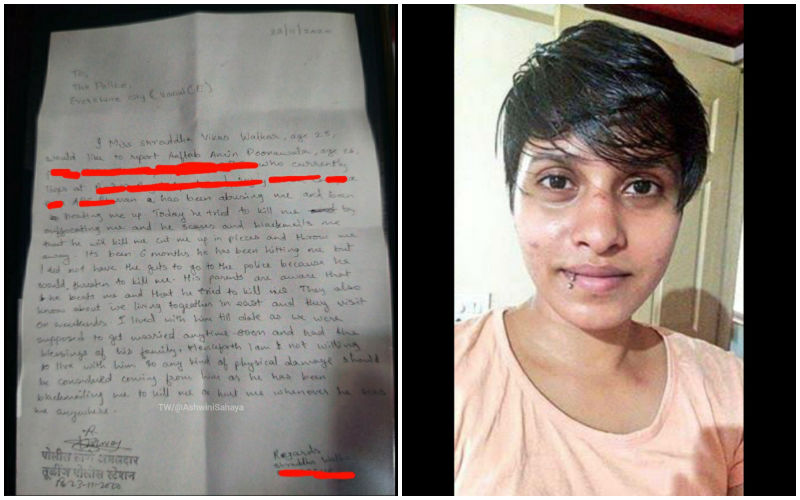 23/11/2020
To,
The Police,
I Miss Shraddha Vikas Walkar, age 25,
would like to report Aaftab Amin Poonawala, age 26,
who currently
lives at
has been abusing me and been
beating me up. Today he tried to kill me by
suffocating me and he scares and blackmails me
that he will kill me cut me up in pieces and throw me
away. Its been 6 months he has been hitting me but
I did not have the guts to go to the police because he
would threaten to kill me. His parents are aware that
he beats me and that he tried to kill me. They also
know about we living together in east and they visit
on weekends. I lived with him till date as we were
supposed to get married anytime soon and had the
blessings of his family. Henceforth I am not willing
to live with him so any kind of physical damage should
be considered coming from him as he has been
blackmailing me to kill me or hurt me whenever he sees
me anywhere.
TW/@AshwiniSahaya
पोलीस ठाणे अंमलदार
तुळींज पोलीस स्टेशन
23-11-2020
Regards
Shraddha Walkar